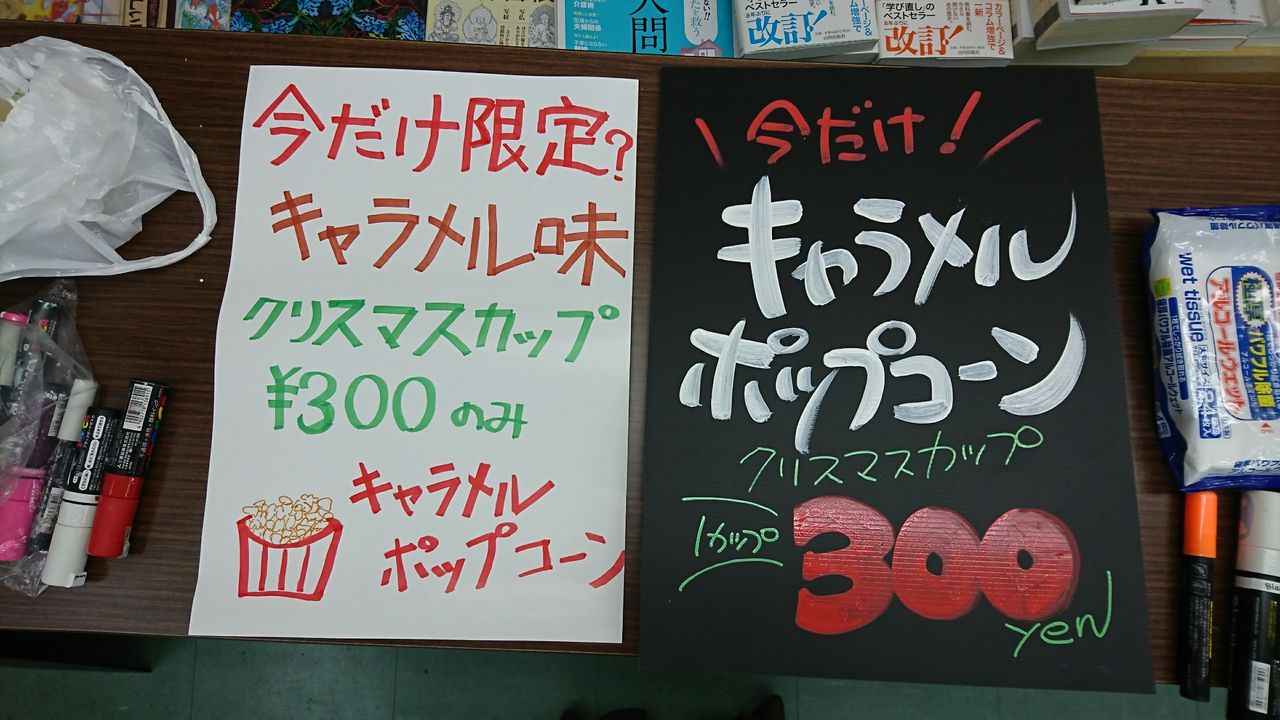 今だけ限定?
キャラメル味
クリスマスカップ
¥300 のみ
キャラメル
ポップコーン
\ 今だけ! /
キャラメル
ポップコーン
クリスマスカップ
1カップ
300
yen
人間
改訂!
「学び直し」の
ベストセラー
改訂!
カラーページ&
コラム増強で
wet tissue
アルコールウエット
パワフル除菌